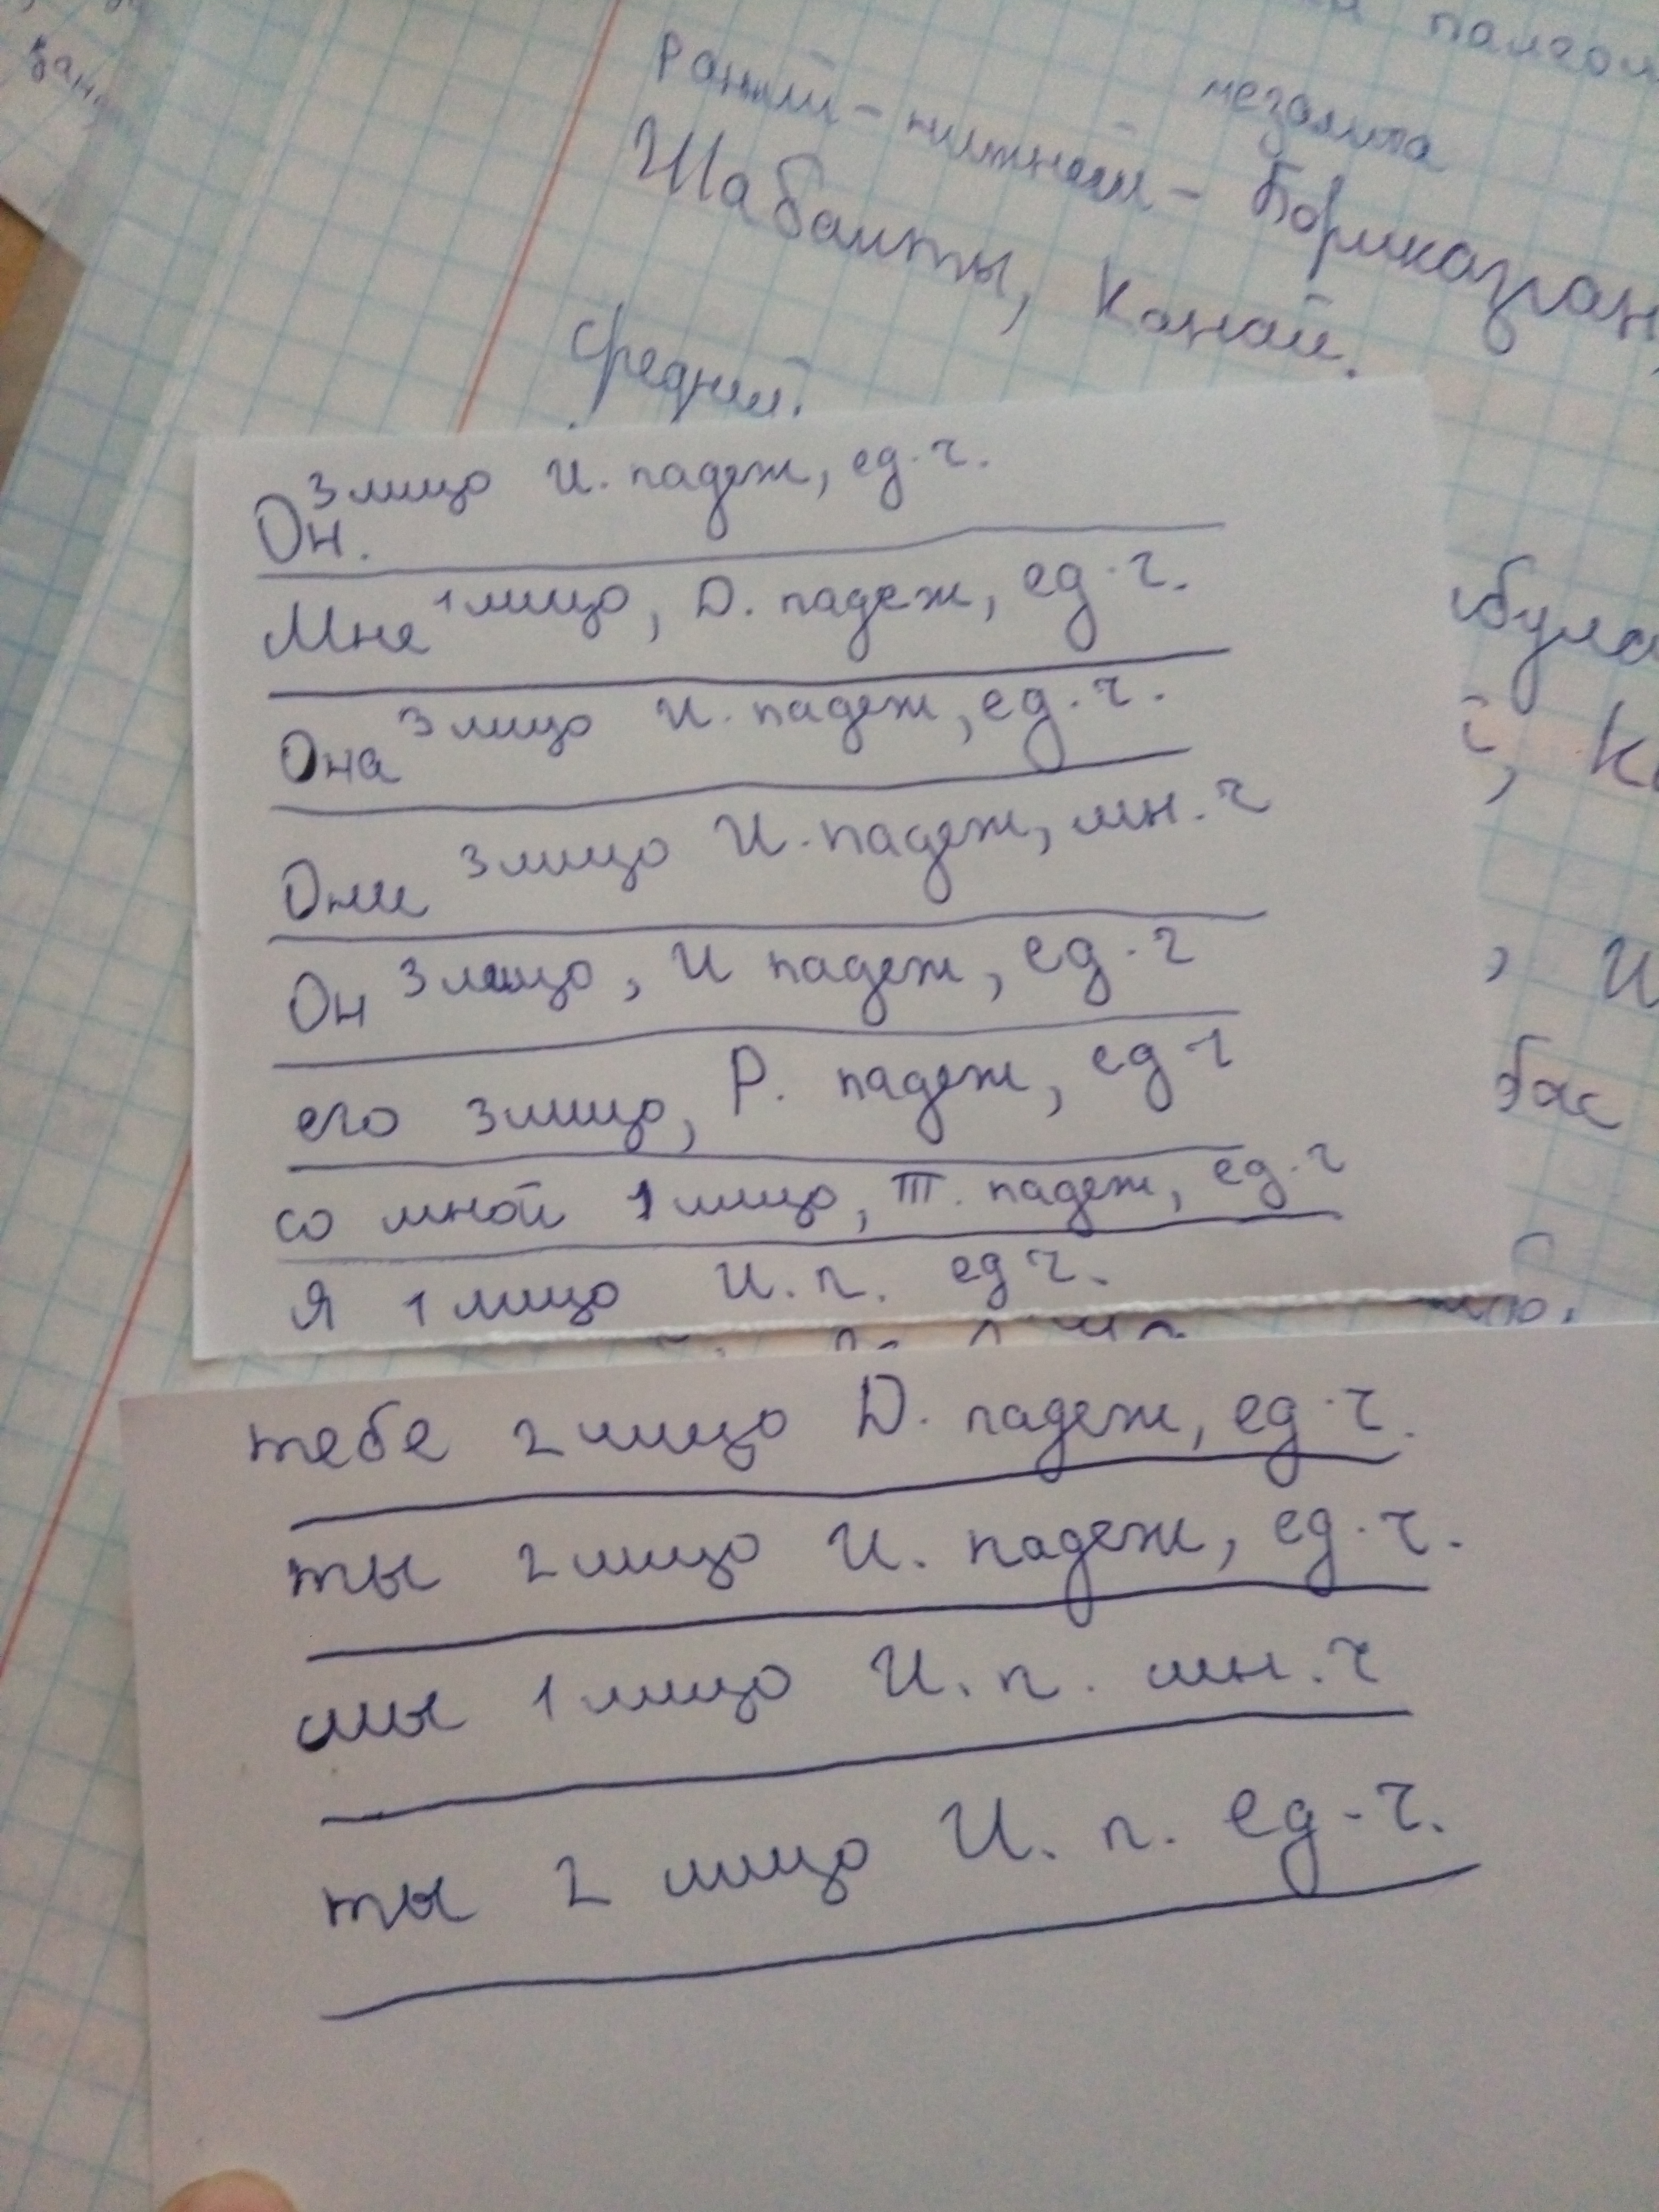 палеол
мезолита
Ранний - нижний - Бориказган,
Шабакты, Канай.
Средний.
Он. 3 лицо И. падеж, ед. ч.
Мне 1 лицо, D. падеж, ед. ч.
Она 3 лицо И. падеж, ед. ч.
Они 3 лицо И. падеж, мн. ч
Он 3 лицо, И падеж, ед. ч
его 3 лицо, Р. падеж, ед ч
со мной 1 лицо, Т. падеж, ед. ч
Я 1 лицо И. п. ед ч.
тебе 2 лицо D. падеж, ед. ч.
ты 2 лицо И. падеж, ед. ч.
мы 1 лицо И. п. мн. ч
ты 2 лицо И. п. ед - ч.